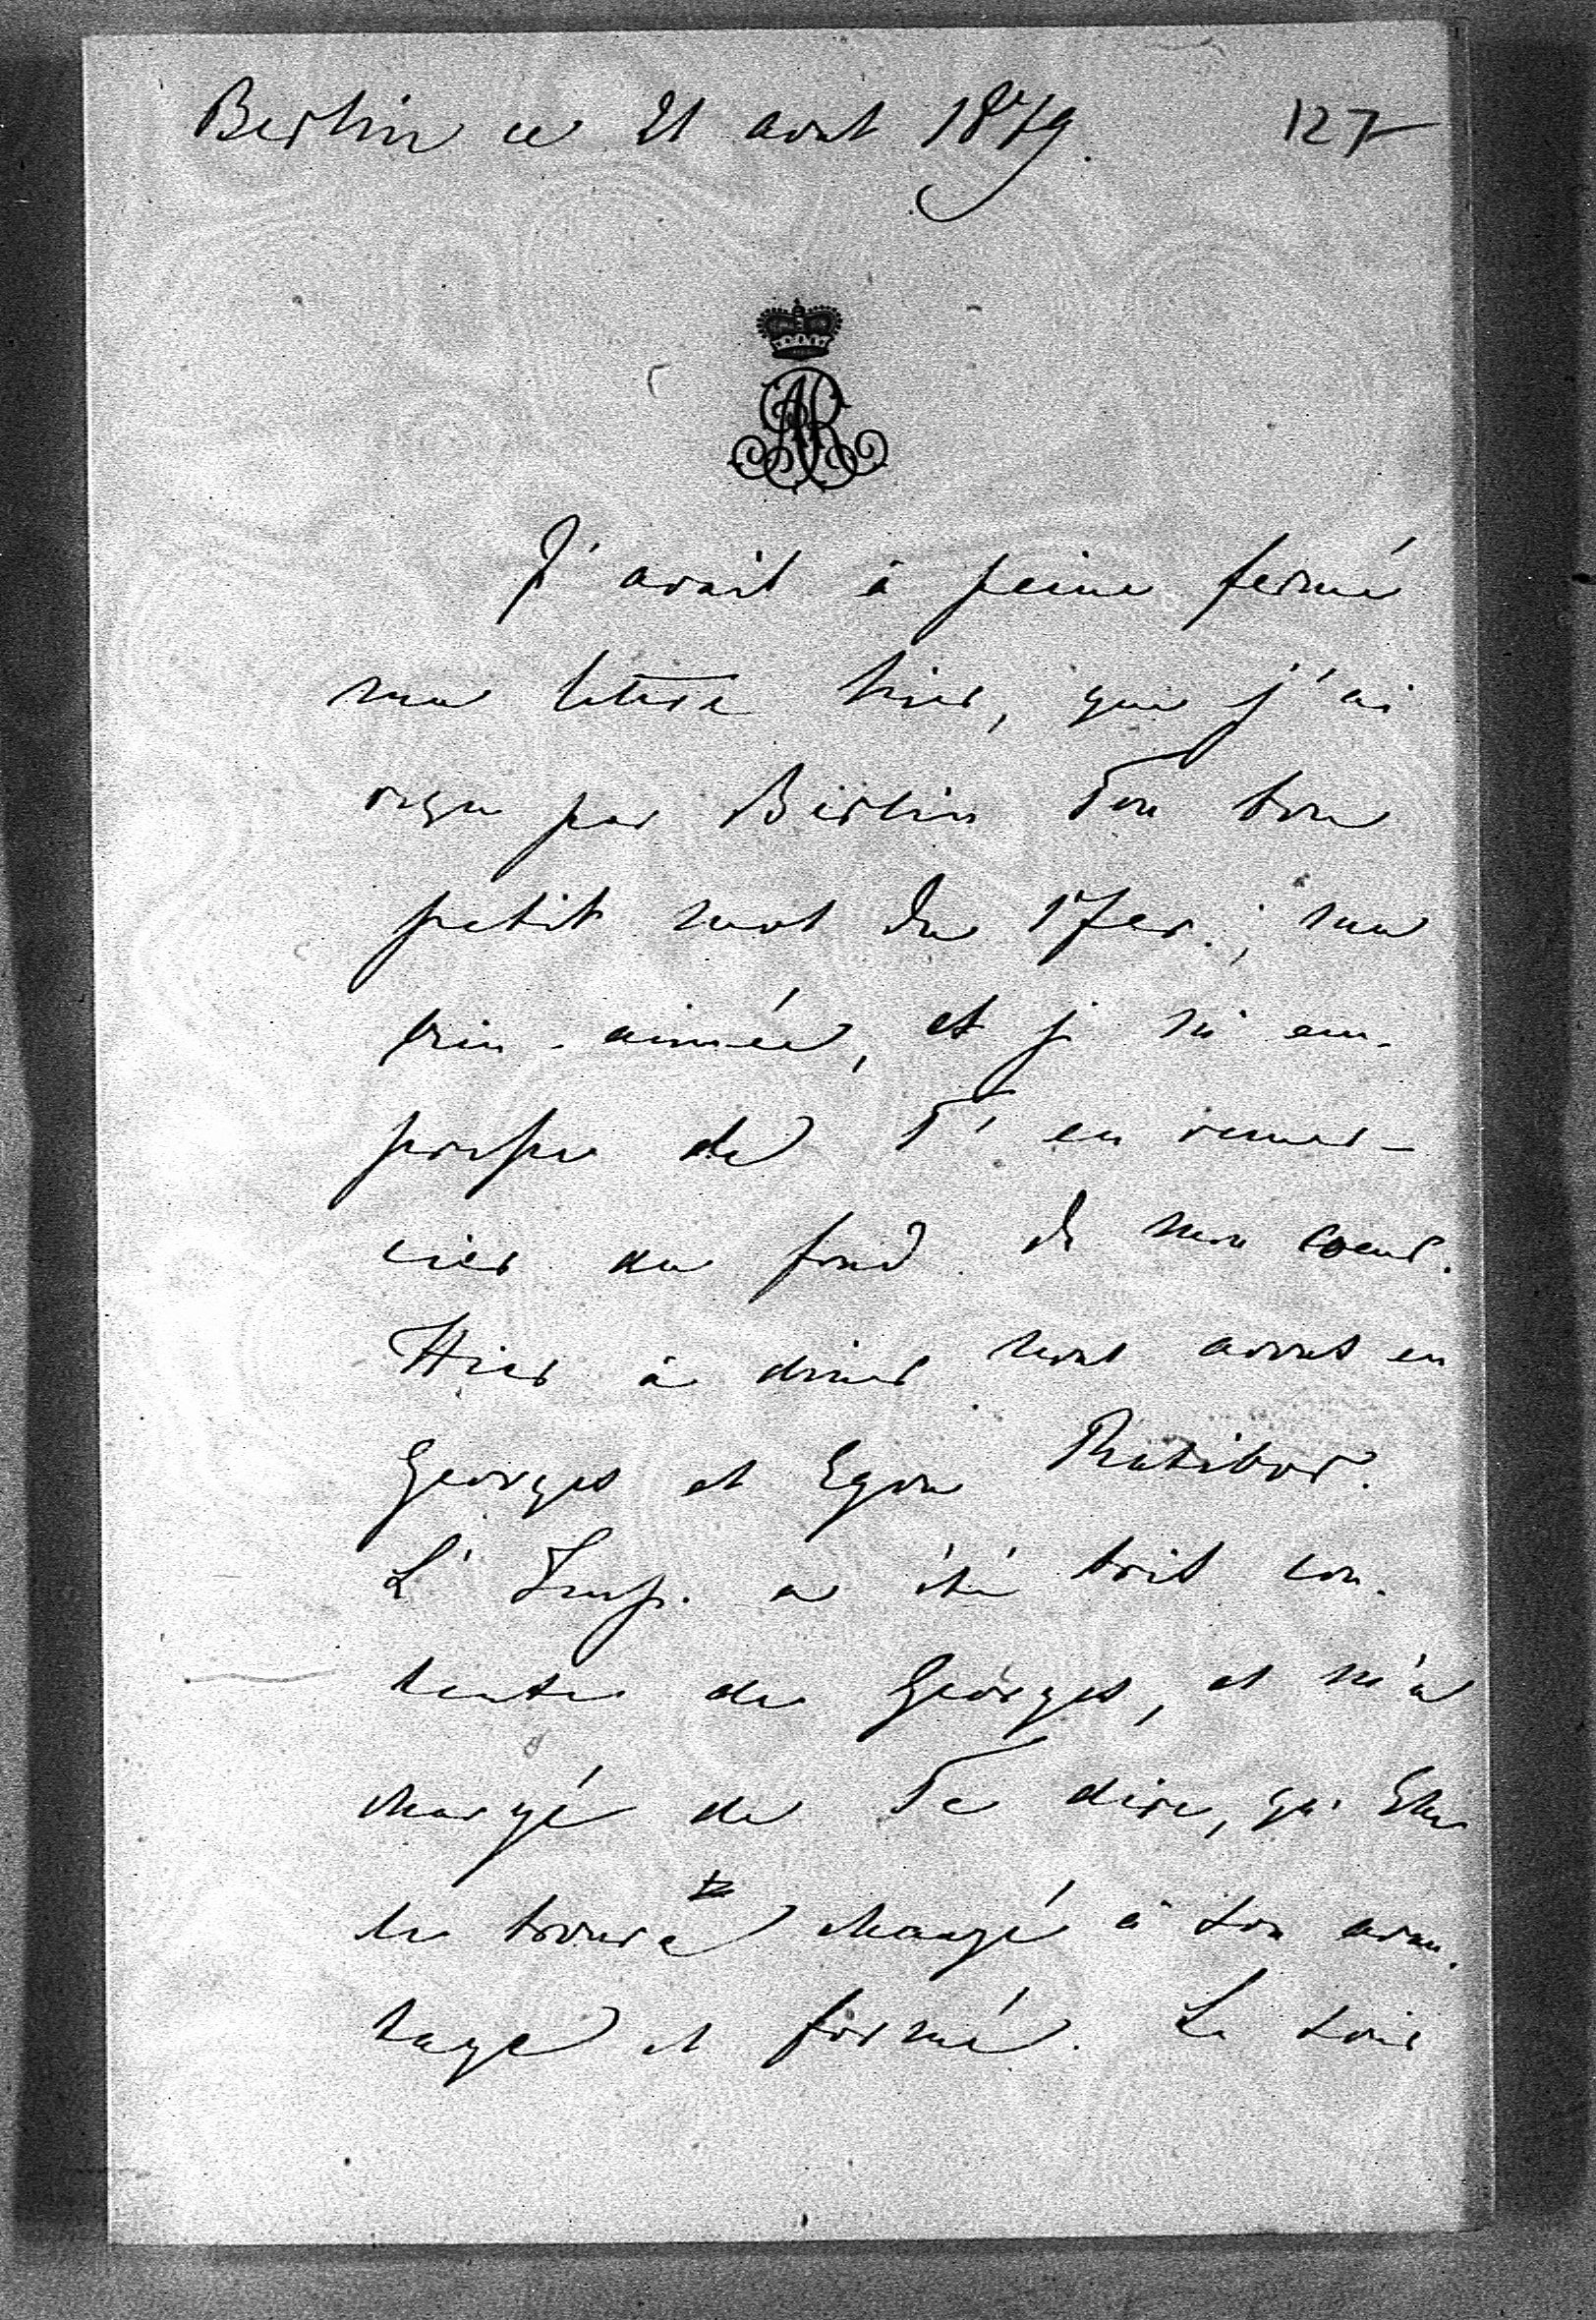 Berlin ce 21 aout 1879. 127
AR
J'avait à peine fermé
ma lettre hier, que j'ai
reçu par Berlin Ton bon
petit mot du 17er., ma
bien-aimée, et je m'em-
presse de T'en remer-
cier du fond de mon coeur.
Hier à diner nous avons eu
Georges et Egon Ratibor.
L'Imp. a été très con-
tente de Georges, et m'a
chargé de Te dire, qu'Elle
le trouve changé à son avan-
tage et formé. Le soir